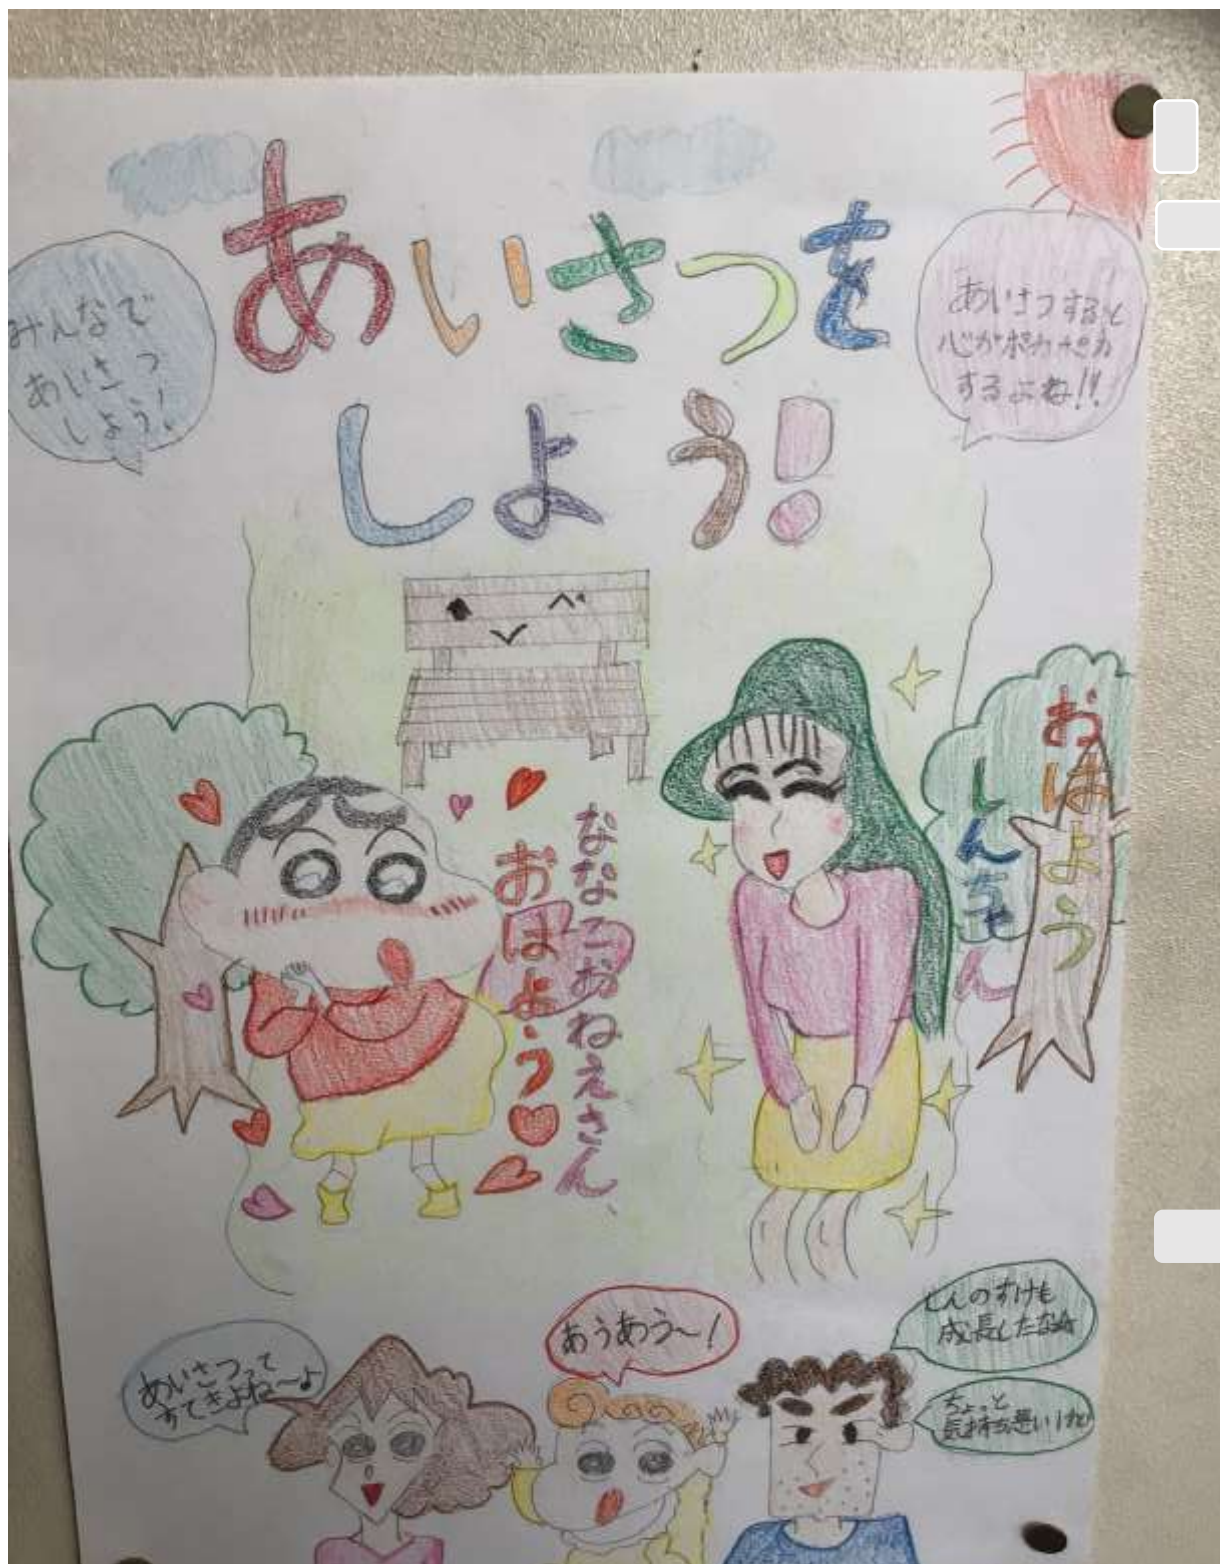 あいさつを
しよう!
みんなで
あいさつ
しよう!
あいさつすると
心がポカポカ
するよね!!
ななこおねえさん、
おはよう
おはよう
しんちゃん
あいさつって
すてきよね〜よ
あうあう〜!
しんのすけも
成長したなぁ
ちょっと
気持ち悪いけど